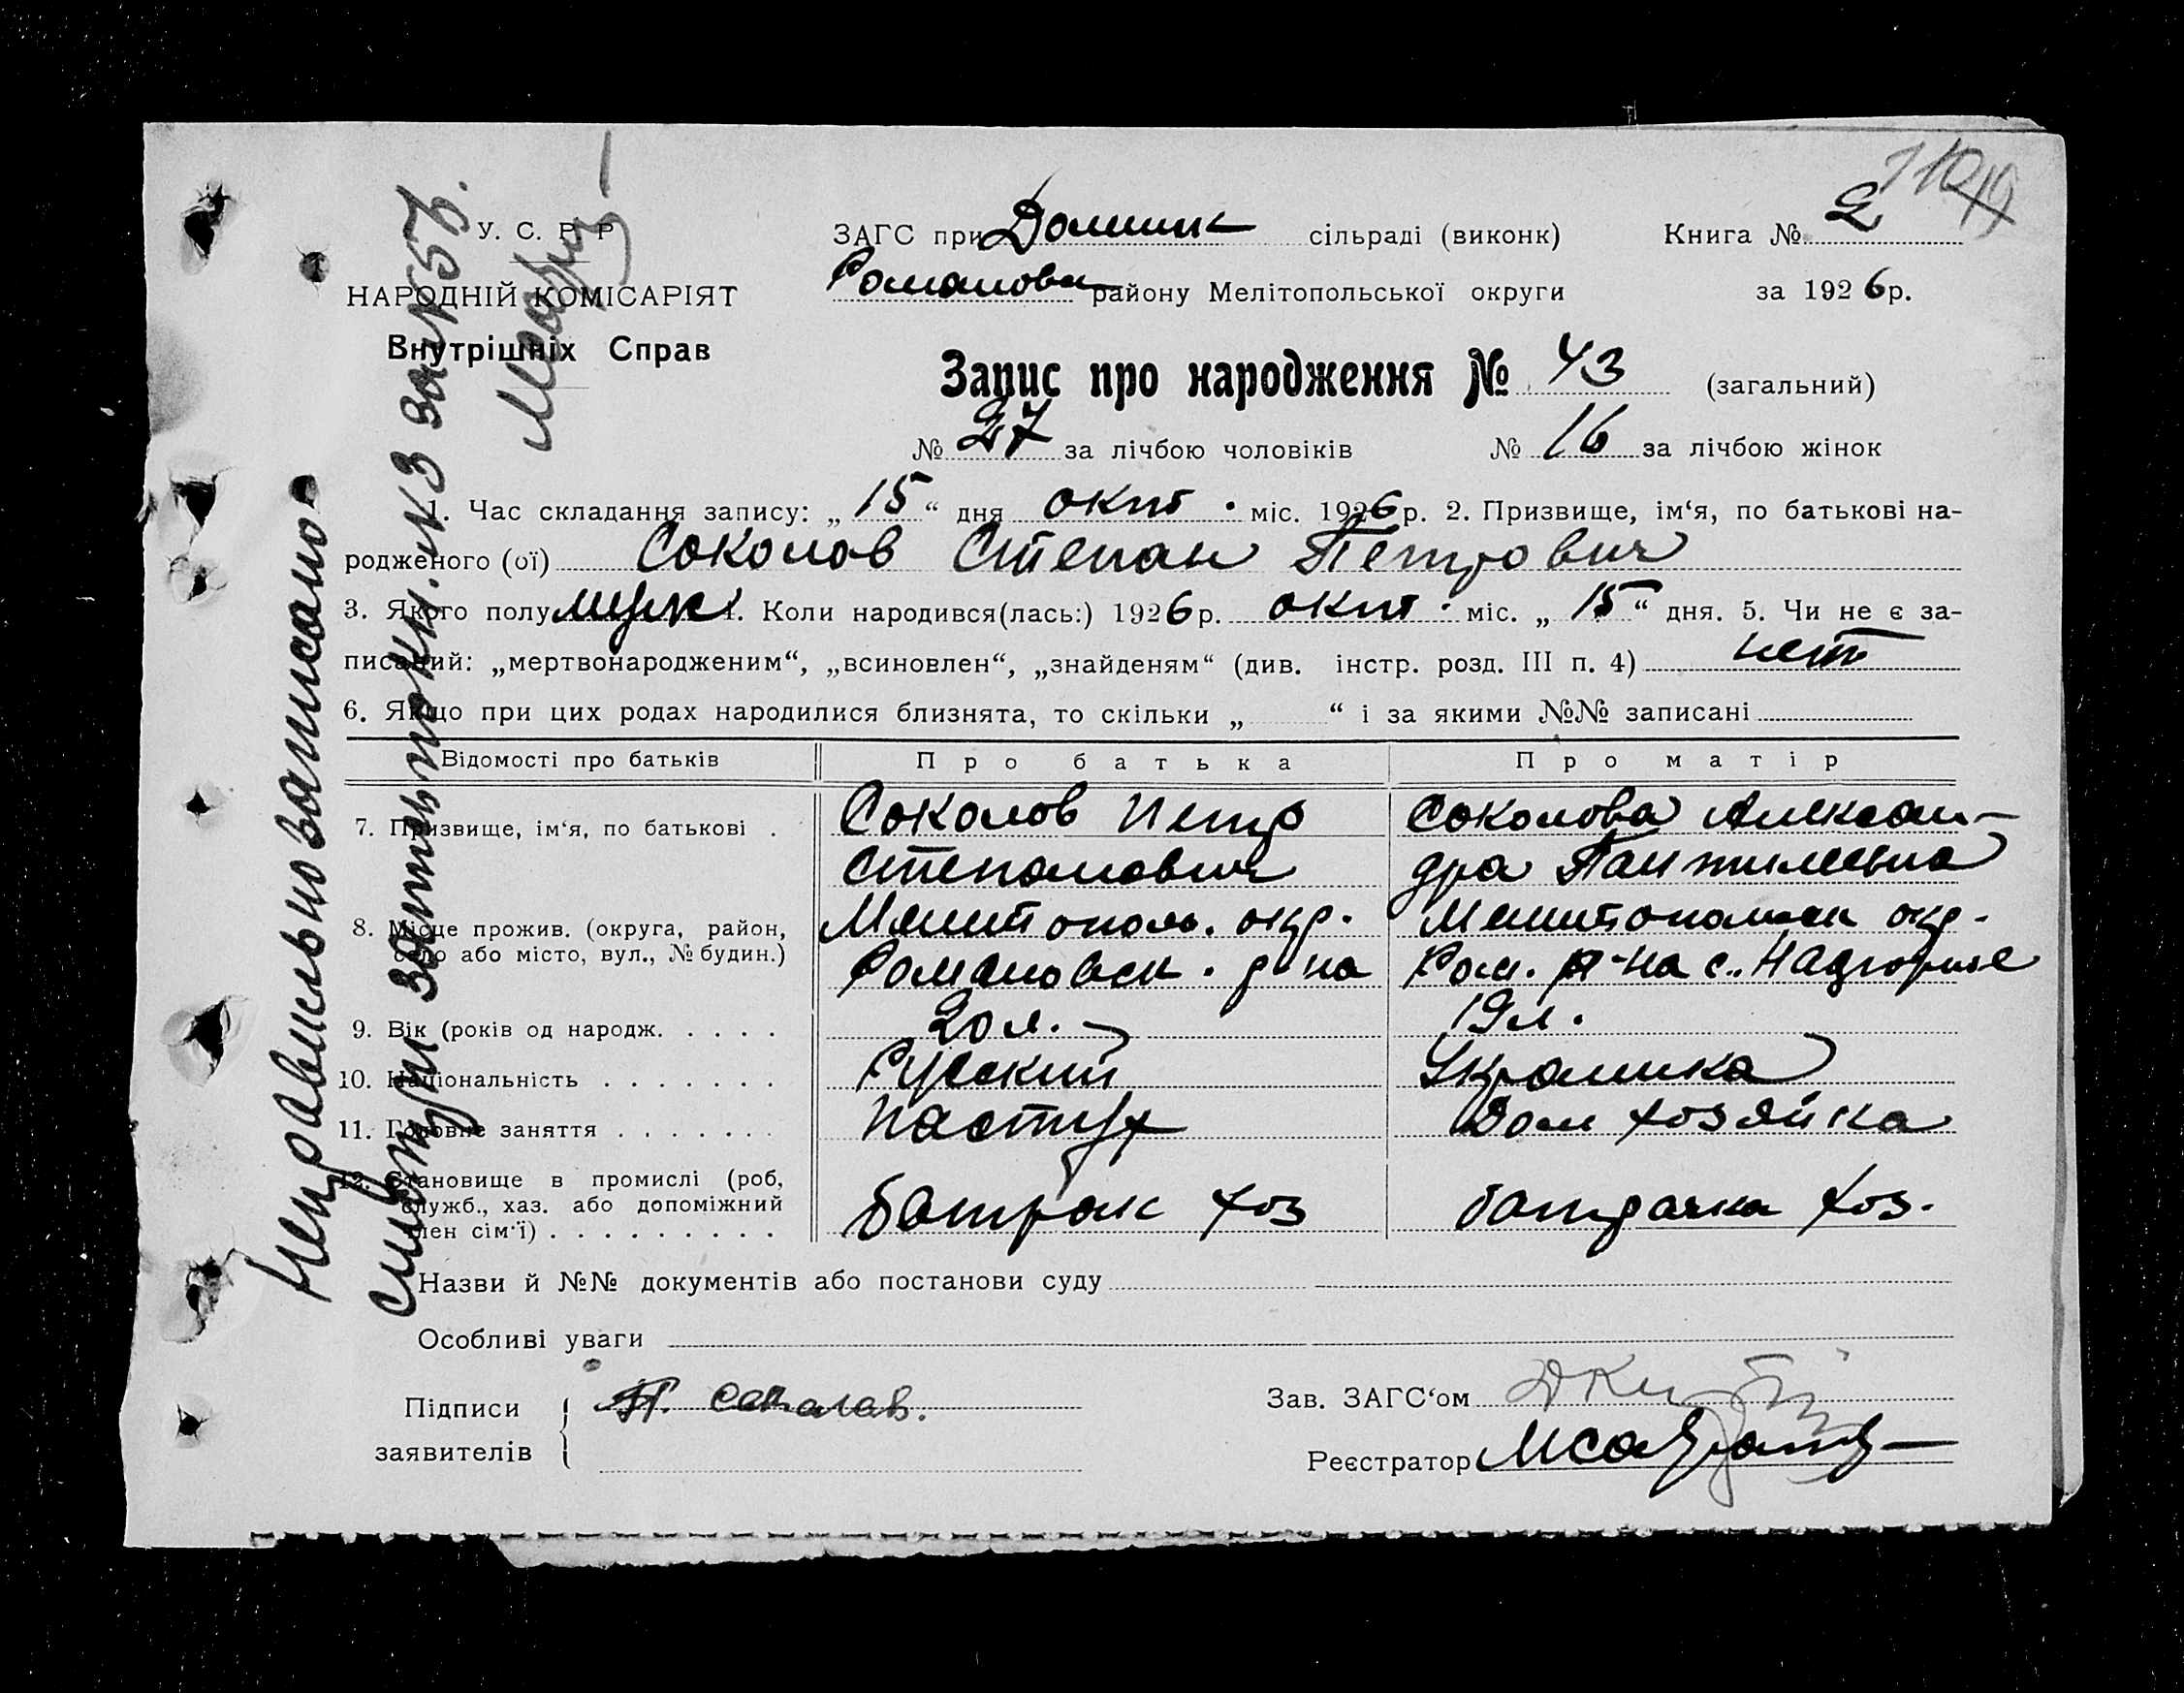 У. С. Р. Р.
НАРОДНІЙ КОМІСАРІЯТ
Внутрішніх Справ
ЗАГС при Долинск сільраді (виконк) Книга № 2
Романовск району Мелітопольської округи за 1926 р.
Запис про народження № 43 (загальний)
№ 27 за лічбою чоловіків № 16 за лічбою жінок
1. Час складання запису: „15“ дня окт. міс. 1926 р. 2. Призвище, ім‘я, по батькові на-
родженого (ої) Соколов Степан Петрович
3. Якого полу муж 4. Коли народився(лась:) 1926 р. окт. міс. „15“ дня. 5. Чи не є за-
писаний: „мертвонародженим“, „всиновлен“, „знайденям“ (див. інстр. розд. III п. 4) нет
6. Якщо при цих родах народилися близнята, то скільки „ “ і за якими №№ записані
Відомості про батьків Про батька Про матір
7. Призвище, ім‘я, по батькові . Соколов Петр Соколова Алексан-
Степанович дра Пантилевна
8. Місце прожив. (округа, район, Мелитополь. окр. Мелитопольск окр.
село або місто, вул., № будин.) Романовск. р-на Ром. р-на с. Надгорное
9. Вік (років од народж. . . . . 20 л. 19 л.
10. Національність . . . . . . . Русский Украинка
11. Головне заняття . . . . . . . пастух Дом хозяйка
12. Становище в промислі (роб,
служб., хаз. або допоміжний батрак хоз батрачка хоз.
член сім‘ї) . . . . . . . . .
Назви й №№ документів або постанови суду
Особливі уваги
Підписи П. Сакалав. Зав. ЗАГС‘ом
заявителів Реєстратор
Неправильно записано
смотри запись по кн. №3 за №57.